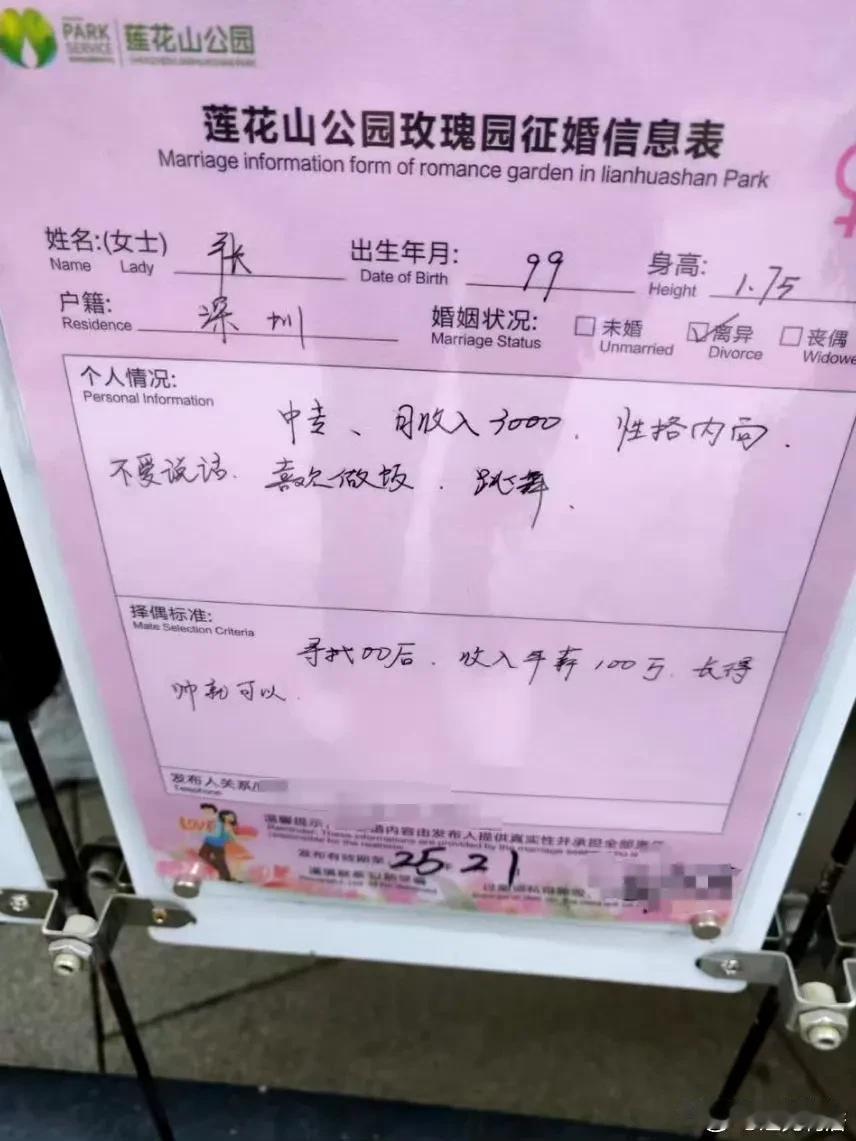 PARK SERVICE 莲花山公园
莲花山公园玫瑰园征婚信息表
Marriage information form of romance garden in lianhuashan Park
姓名:(女士) 张 出生年月: 99 身高: 1.75
Name Lady Date of Birth Height
户籍: 深圳 婚姻状况: 未婚 离异 丧偶
Residence Marriage Status Unmarried Divorce Widowe
个人情况:
Personal Information
中专、月收入3000.性格内向.
不爱说话.喜欢做饭.跳舞.
择偶标准:
Mate Selection Criteria
寻找00后.收入年薪100万.长得
帅就可以.
发布人关系
Telephone
温馨提示 内容由发布人提供真实性并承担全部责
Reminder: These informations are provided by the marriage
responsible for the
LOVE
发布有效期至 25.21